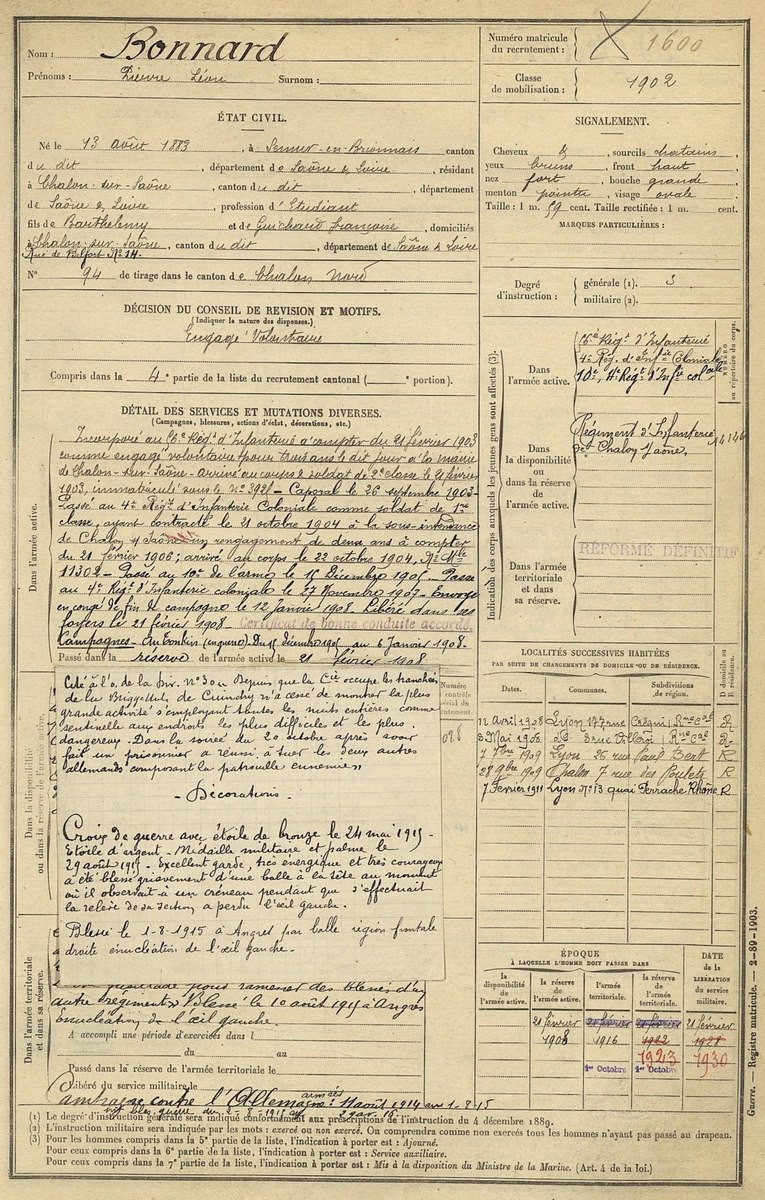 Nom : Bonnard
Prénoms : Pierre Léon Surnom :
Numéro matricule du recrutement : 1600
Classe de mobilisation : 1902
ÉTAT CIVIL.
Né le 13 août 1883, à Semur-en-Brionnais canton
du dit, département de Saône & Loire, résidant
à Chalon-sur-Saône, canton du dit, département
de Saône & Loire, profession d'Etudiant
fils de Barthélemy et de Guichard Françoise, domiciliés
à Chalon-sur-Saône, canton du dit, département de Saône & Loire
Rue de Belfort No 14.
N° 94 de tirage dans le canton de Chalon Nord
SIGNALEMENT.
Cheveux &, sourcils chatains,
yeux bruns, front haut
nez fort, bouche grande
menton pointu, visage ovale.
Taille : 1 m. 59 cent. Taille rectifiée : 1 m. cent.
MARQUES PARTICULIÈRES :
Degré d'instruction : générale (1). 3
militaire (2).
DÉCISION DU CONSEIL DE REVISION ET MOTIFS.
(Indiquer la nature des dispenses.)
Engagé Volontaire
Compris dans la 4e partie de la liste du recrutement cantonal ( e portion).
DÉTAIL DES SERVICES ET MUTATIONS DIVERSES.
(Campagnes, blessures, actions d'éclat, décorations, etc.)
Dans l'armée active.
Incorporé au Régt d'Infanterie à compter du 21 février 1903
comme engagé volontaire pour trois ans le dit jour à la mairie
de Chalon-sur-Saône. Arrivé au corps & soldat de 2e classe le 21 février
1903, immatriculé sous le No 3921 - Caporal le 26 septembre 1903.
Passé au 4e Régt d'Infanterie Coloniale comme soldat de 1re
classe, ayant contracté le 21 octobre 1904 à la sous-intendance
de Chalon s/ Saône un rengagement de deux ans à compter
du 21 février 1906; arrivé au corps le 22 octobre 1904, No Mle
11302 - Passé au 10e de l'arme le 15 Décembre 1905 - Passé
au 4e Régt d'Infanterie coloniale le 27 Novembre 1907 - Envoyé
en congé de fin de campagne le 12 Janvier 1908. Libéré dans ses
foyers le 21 février 1908 - Certificat de bonne conduite accordé.
Campagnes - Au Tonkin (en guerre) - Du 15 décembre 1905 au 6 Janvier 1908.
Passé dans la réserve de l'armée active le 21 février 1908
Indication des corps auxquels les jeunes gens sont affectés (3).
Dans l'armée active.
Régt d'Infanterie
4e Rég. d'Infie Coloniale
10e, 4e Régt d'Infie coloale
NUMÉRO au répertoire du corps.
Dans la disponibilité ou dans la réserve de l'armée active.
Régiment d'Infanterie
de Chalon s/Saône.
Dans l'armée territoriale et dans sa réserve.
RÉFORMÉ DÉFINITIF
Dans la disponibilité ou dans la réserve de l'armée active.
Cité à l'o. de la Div. No 30 « Depuis que la Cie occupe les tranchées
de la Briqueterie, de Cuinchy n'a cessé de montrer la plus
grande activité s'employant toutes les nuits entières comme
sentinelle aux endroits les plus difficiles et les plus
dangereux. Dans la soirée du 20 octobre après avoir
fait un prisonnier a réussi à tuer les deux autres
allemands composant la patrouille ennemie »
- Décorations -
Croix de guerre avec étoile de bronze le 24 mai 1915 -
Etoile d'argent - Médaille militaire et palme le
29 août 1915 - Excellent garde, très énergique et très courageux
a été blessé grièvement d'une balle à la tête au moment
où il observait à un créneau pendant que s'effectuait
la relève de sa section a perdu l'œil gauche.
Blessé le 1-8-1915 à Angres par balle région frontale
droite énucléation de l'œil gauche -
Numéro contrôle spécial du recrutement.
LOCALITÉS SUCCESSIVES HABITÉES
PAR SUITE DE CHANGEMENTS DE DOMICILE OU DE RÉSIDENCE.
Dates. Communes. Subdivisions de région. D domicile ou R résidence.
12 Avril 1908 Lyon 177 rue Créqui Rne Cal R
3 Mai 1908 do 3 rue Villeroy Rne Cal R
7 7bre 1909 Lyon 26 rue Paul Bert R
28 9bre 1909 Chalon 7 rue des Poulets R
7 Février 1911 Lyon No 13 quai Perrache Rhône R
Dans l'armée territoriale et dans sa réserve.
pour ramener des blessés d'un
autre régiment » Blessé le 1er août 1915 à Angres
Enucléation de l'œil gauche.
A accompli une période d'exercices dans l
du au
Passé dans la réserve de l'armée territoriale le
Libéré du service militaire le
Campagne contre l'Allemagne : armées 14 août 1914 au 1-8-15
ÉPOQUE
À LAQUELLE L'HOMME DOIT PASSER DANS
la disponibilité de l'armée active. la réserve de l'armée active. l'armée territoriale. la réserve de l'armée territoriale. DATE de la LIBÉRATION du service militaire.
21 février 21 février 21 février 21 février
1908 1916 1922 1928
1923 1930
1er Octobre 1er Octobre
(1) Le degré d'instruction générale sera indiqué conformément aux prescriptions de l'instruction du 4 décembre 1889.
(2) L'instruction militaire sera indiquée par les mots : exercé ou non exercé. On comprendra comme non exercés tous les hommes n'ayant pas passé au drapeau.
(3) Pour les hommes compris dans la 5e partie de la liste, l'indication à porter est : Ajourné.
Pour ceux compris dans la 6e partie de la liste, l'indication à porter est : Service auxiliaire.
Pour ceux compris dans la 7e partie de la liste, l'indication à porter est : Mis à la disposition du Ministre de la Marine. (Art. 4 de la loi.)
Guerre. — Registre matricule. — 2-89-1903.